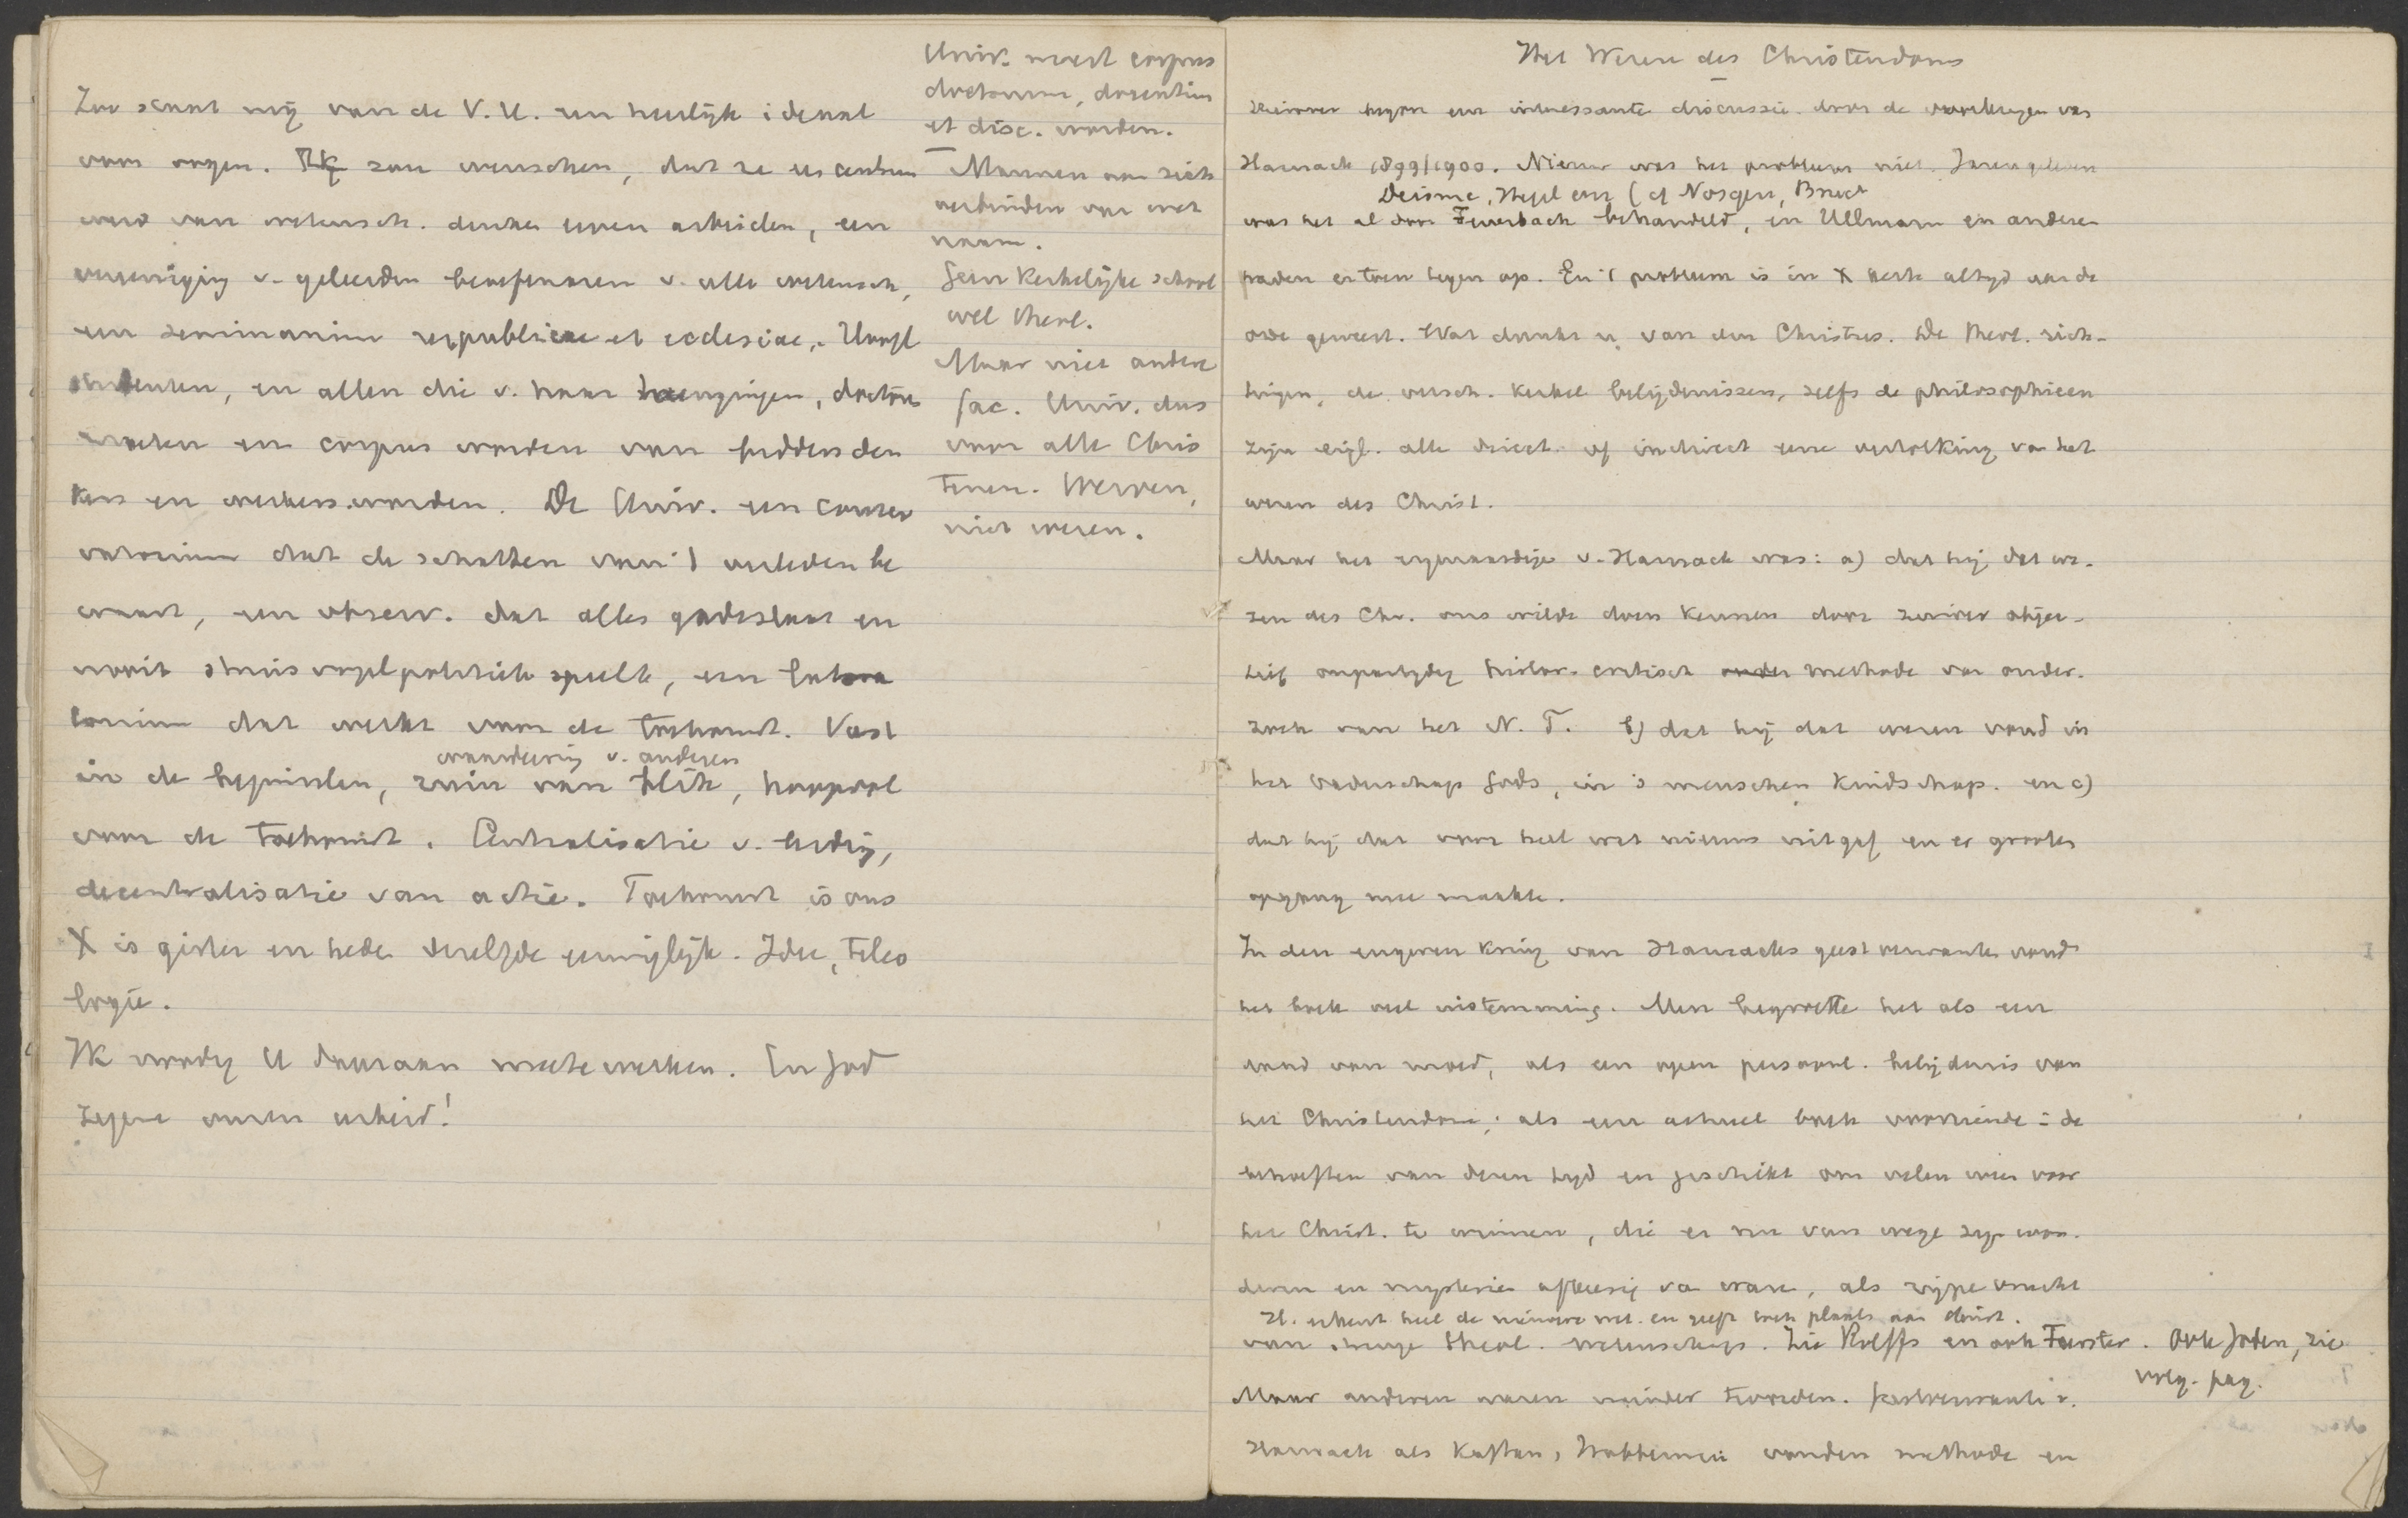 Zoo staat mij van de V.U. een heerlijk ideaal
voor oogen. Ik zou wenschen, dat ze es centrum
werd van wetensch. denken en arbeiden, een
vereeniging v. geleerden beoefenaren v. alle wetensch,
een seminarium reipublicae et ecclesiae,
studenten, en allen die v. haar heengingen, doctores
moeten een corpus worden van
en De Univ. een conser
vatorium dat de schatten van 't verleden be
waart, een observ. dat alles gadeslaat en
nooit struisvogelpolitiek speelt, een labora
torium dat werkt voor de toekomst. Vast
waardeering v. anderen
in de beginselen, ruim van blik, hoopvol
voor de toekomst. Centralisatie v. leiding,
decentralisatie van actie. Toekomst is ons
X is gister en heden dezelfde eeuwiglijk. Idee, teleo
logie.
Ik noodig U daaraan mede werken. En God
zegene onzen arbeid!
Univ. moet corpus
doctorum, docentium
et disc. worden.
Mannen om zich
verbinden van met
naam.
Geen kerkelijke school
wel theol.
Maar niet andere
fac. Univ. dus
voor alle Chris
tenen. Werven,
niet weren.
Het Wezen des Christendoms
Hierover begon een interessante discussie door de voorlezingen van
Harnack 1899/1900. Nieuw was het probleem niet. Jaren geleden
Deisme, Hegel enz (cf Nösgen,
was het al door Feuerbach behandeld, en Ullmann en anderen
traden er toen tegen op. En 't probleem is in X kerk altijd aan de
orde geweest. Wat dunkt u van den Christus. De theol. rich-
tingen, de versch. kerkel belijdenissen, zelfs de philosophieen
zijn eigl. alle direct of indirect eene vertolking van het
wezen des Christ.
Maar het eigenaardige v. Harnack was: a) dat hij dat we-
zen des Chr. ons wilde doen kennen door zuiver objec-
tief onpartijdig histor. critisch methode van onder-
zoek van het N.T. b) dat hij dat wezen vond in
het Vaderschap Gods, in 's menschen Kindschap. en c)
dat hij dat voor heel wat nieuws uitgaf en er grooten
opgang mee maakte.
In den engeren kring van Harnacks geestverwanten vond
het boek veel instemming. Men begroette het als een
daad van moed, als een open persoonl. belijdenis van
het Christendom; als een actueel boek voorziende in de
behoeften van dezen tijd en geschikt om velen weer voor
het Christ. te winnen, die er nu van wege zijn won-
deren en mysterien afkeerig van waren, als rijpe vrucht
H. erkent heel de nieuwere wet. en geeft toch plaats aan Christ.
van theol. wetenschap. Zie Rolffs en ook Foerster. Ook Joden, zie
volg. pag.
Maar anderen waren minder tevreden. Geestverwanten v.
Harnack als Kaftan, Wobbermin vonden methode en